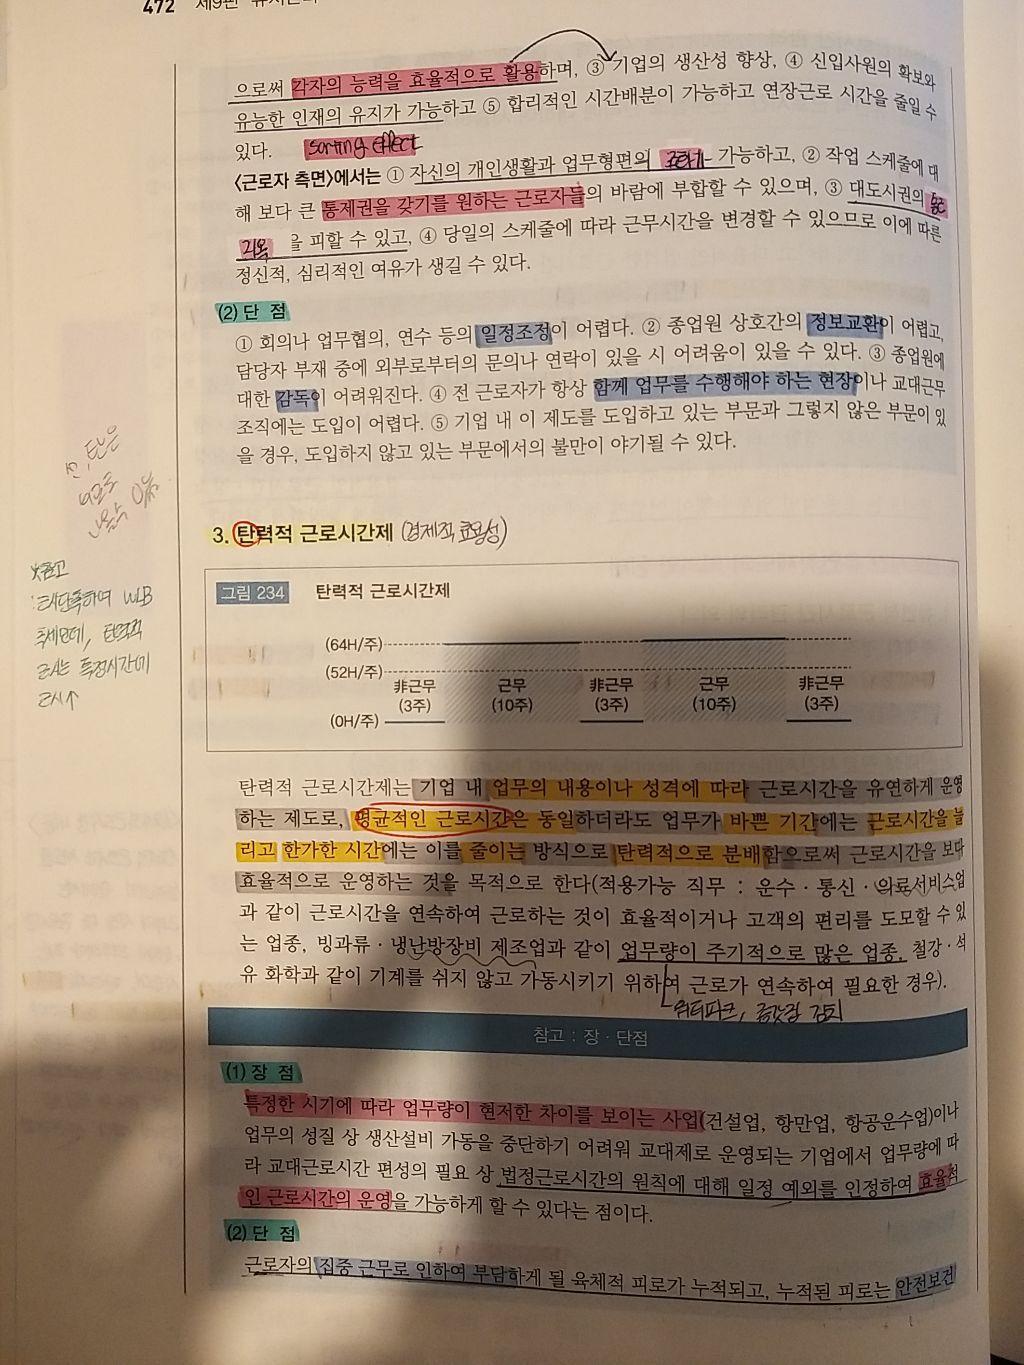 472
으로써 각자의 능력을 효율적으로 활용하며, ③ 기업의 생산성 향상, ④ 신입사원의 확보와
유능한 인재의 유지가 가능하고 ⑤ 합리적인 시간배분이 가능하고 연장근로 시간을 줄일 수
있다. sorting effect
〈근로자 측면〉에서는 ① 자신의 개인생활과 업무형편의 가능하고, ② 작업 스케줄에 대
해 보다 큰 통제권을 갖기를 원하는 근로자들의 바람에 부합할 수 있으며, ③ 대도시권의
을 피할 수 있고, ④ 당일의 스케줄에 따라 근무시간을 변경할 수 있으므로 이에 따른
정신적, 심리적인 여유가 생길 수 있다.
(2) 단 점
① 회의나 업무협의, 연수 등의 일정조정이 어렵다. ② 종업원 상호간의 정보교환이 어렵고,
담당자 부재 중에 외부로부터의 문의나 연락이 있을 시 어려움이 있을 수 있다. ③ 종업원에
대한 감독이 어려워진다. ④ 전 근로자가 항상 함께 업무를 수행해야 하는 현장이나 교대근무
조직에는 도입이 어렵다. ⑤ 기업 내 이 제도를 도입하고 있는 부문과 그렇지 않은 부문이 있
을 경우, 도입하지 않고 있는 부문에서의 불만이 야기될 수 있다.
3. 탄력적 근로시간제 (경제적 효용성)
*참고
: 근시단축하여 WLB
추세인데, 탄력적
근시는 특정시간에
근시↑
그림 234 탄력적 근로시간제
(64H/주)
(52H/주)
非근무 근무 非근무 근무 非근무
(3주) (10주) (3주) (10주) (3주)
(0H/주)
탄력적 근로시간제는 기업 내 업무의 내용이나 성격에 따라 근로시간을 유연하게 운영
하는 제도로, 평균적인 근로시간은 동일하더라도 업무가 바쁜 기간에는 근로시간을 늘
리고 한가한 시간에는 이를 줄이는 방식으로 탄력적으로 분배함으로써 근로시간을 보다
효율적으로 운영하는 것을 목적으로 한다(적용가능 직무 : 운수 · 통신 · 의료서비스업
과 같이 근로시간을 연속하여 근로하는 것이 효율적이거나 고객의 편리를 도모할 수 있
는 업종, 빙과류 · 냉난방장비 제조업과 같이 업무량이 주기적으로 많은 업종. 철강 · 석
유 화학과 같이 기계를 쉬지 않고 가동시키기 위하여 근로가 연속하여 필요한 경우).
워터파크, 김치
참고 : 장 · 단점
(1) 장 점
특정한 시기에 따라 업무량이 현저한 차이를 보이는 사업(건설업, 항만업, 항공운수업)이나
업무의 성질 상 생산설비 가동을 중단하기 어려워 교대제로 운영되는 기업에서 업무량에 따
라 교대근로시간 편성의 필요 상 법정근로시간의 원칙에 대해 일정 예외를 인정하여 효율적
인 근로시간의 운영을 가능하게 할 수 있다는 점이다.
(2) 단 점
근로자의 집중 근무로 인하여 부담하게 될 육체적 피로가 누적되고, 누적된 피로는 안전보건